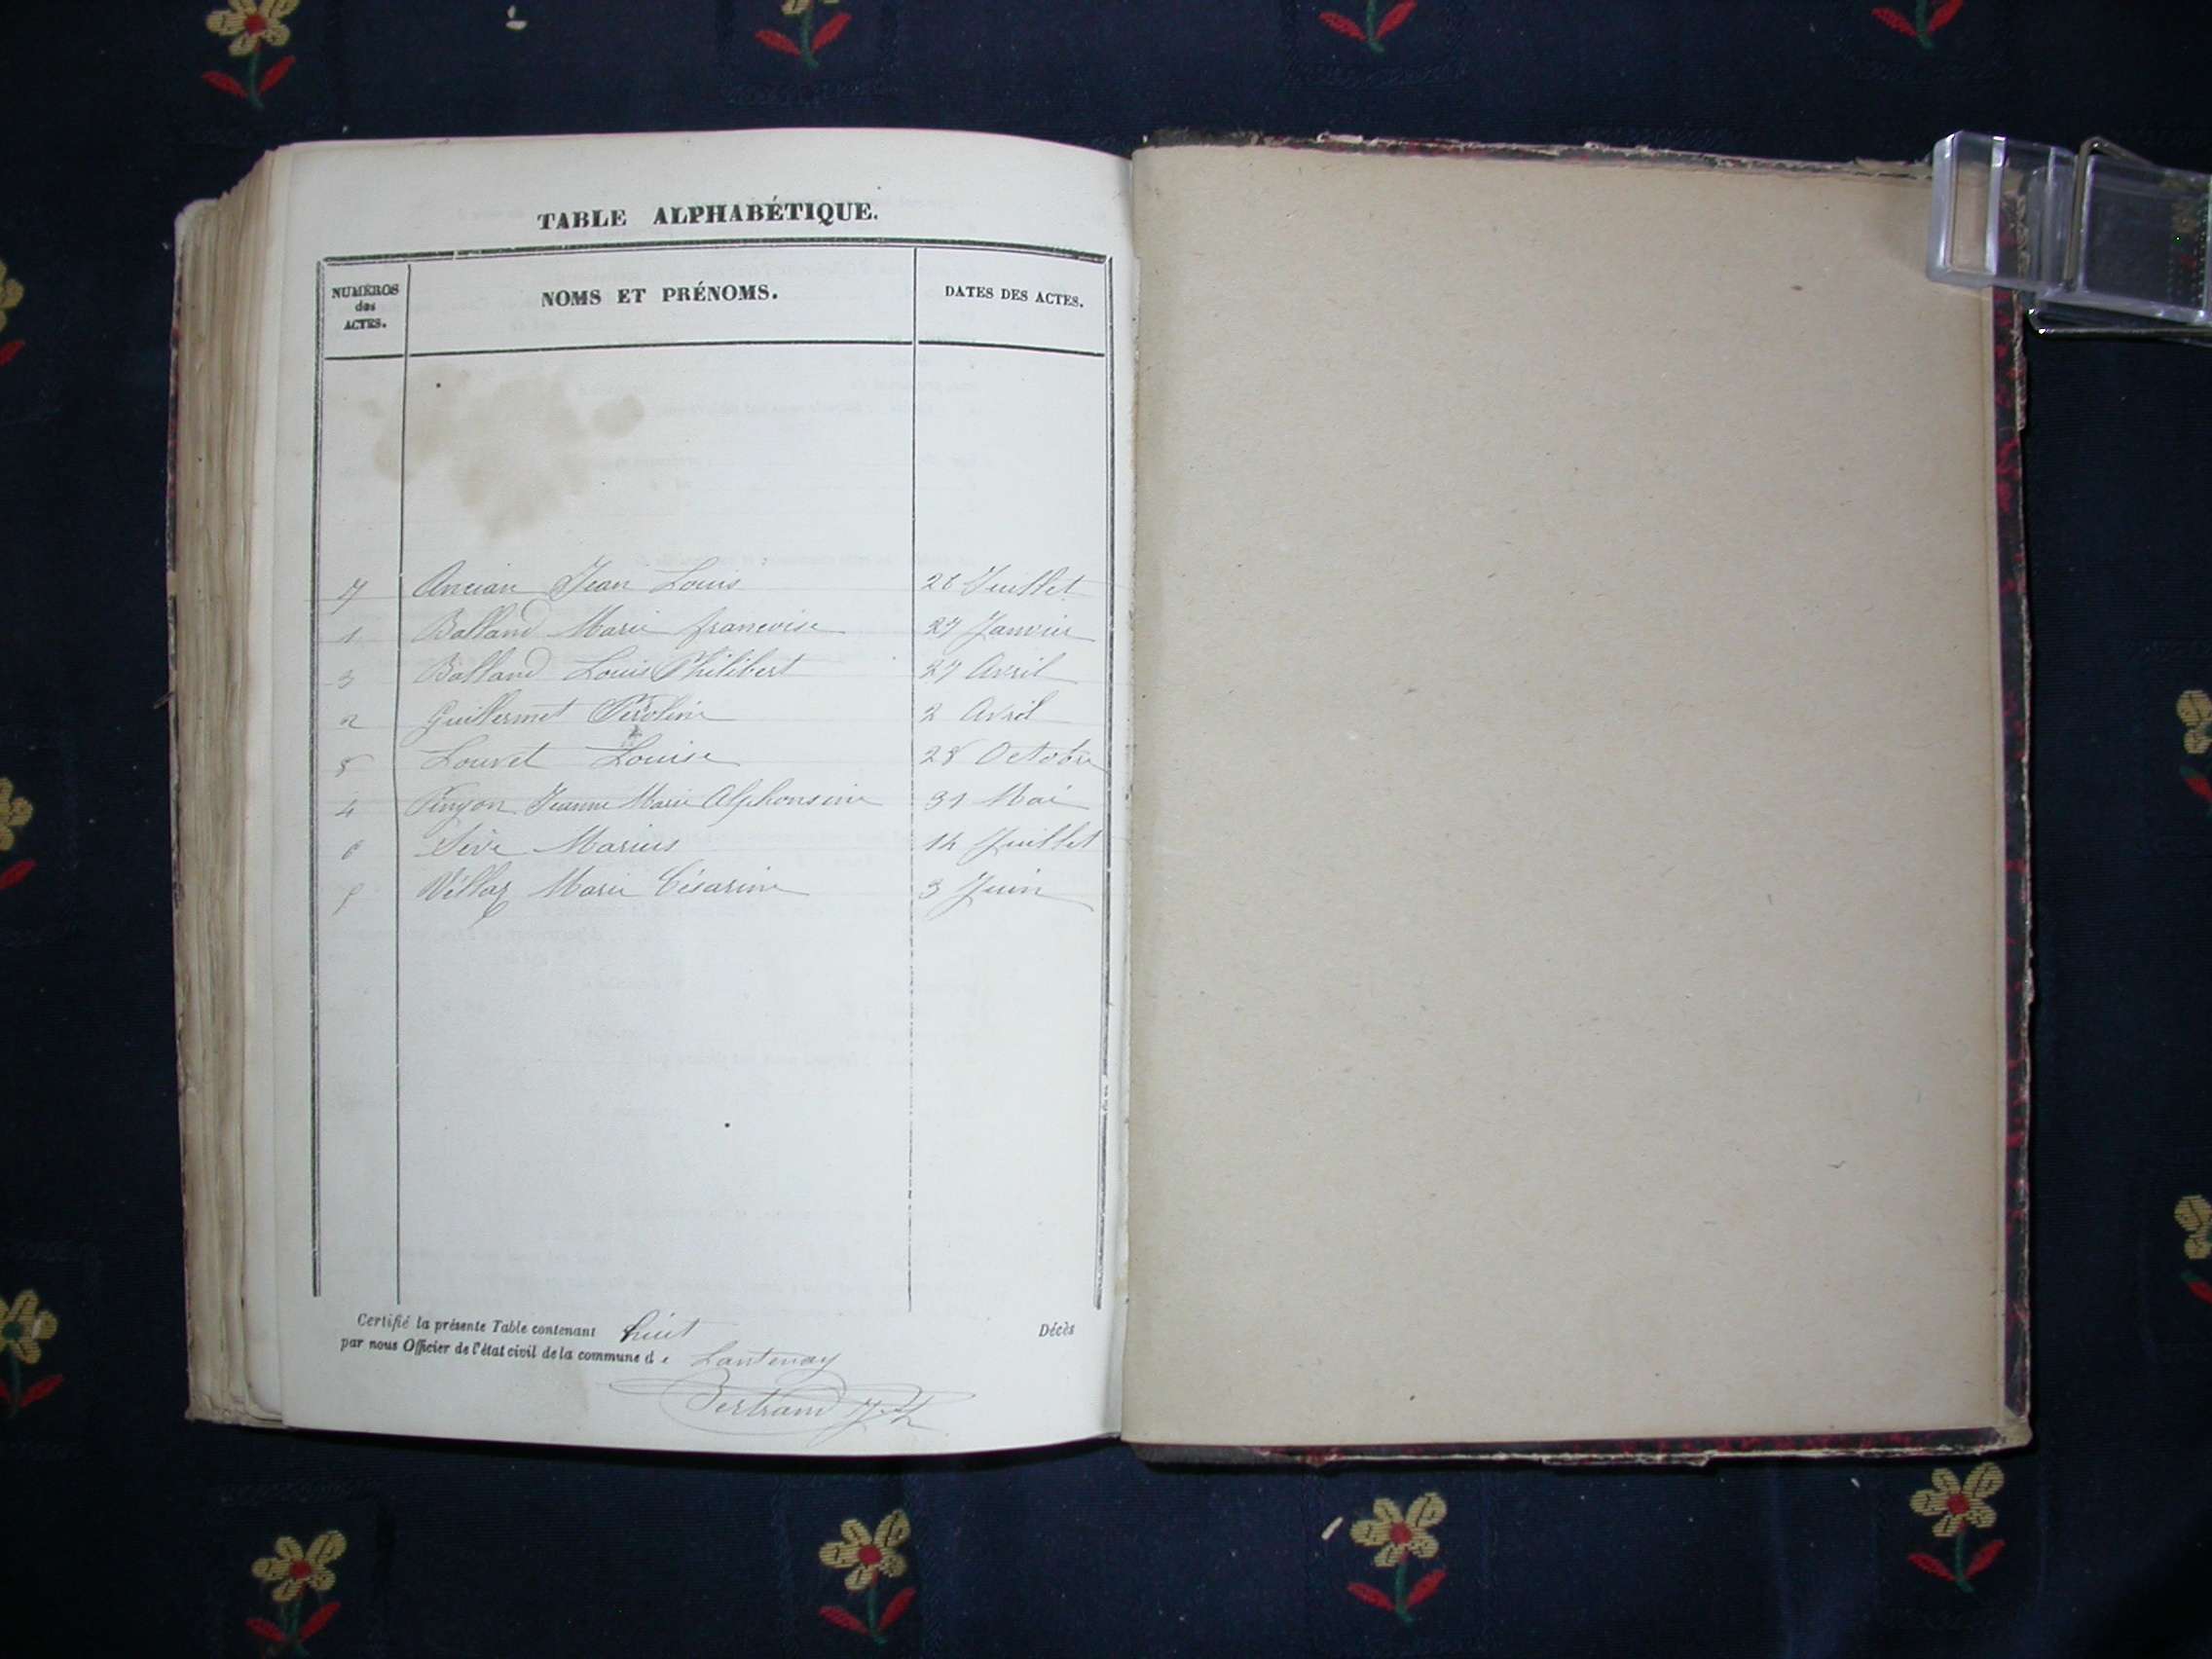 TABLE ALPHABÉTIQUE.
NUMÉROS des ACTES. NOMS ET PRÉNOMS. DATES DES ACTES.
7 Ancian Jean Louis 28 Juillet
1 Balland Marie françoise 27 Janvier
3 Balland Louis Philibert 27 Avril
2 Guillermet Péroline 2 Avril
8 Louvet Louise 28 Octobre
4 Pingon Jeanne Marie Alphonsine 31 Mai
6 Sève Marius 14 Juillet
5 Marie Césarine 3 Juin
Certifié la présente Table contenant huit Décès
par nous Officier de l'état civil de la commune de Lantenay
Bertrand